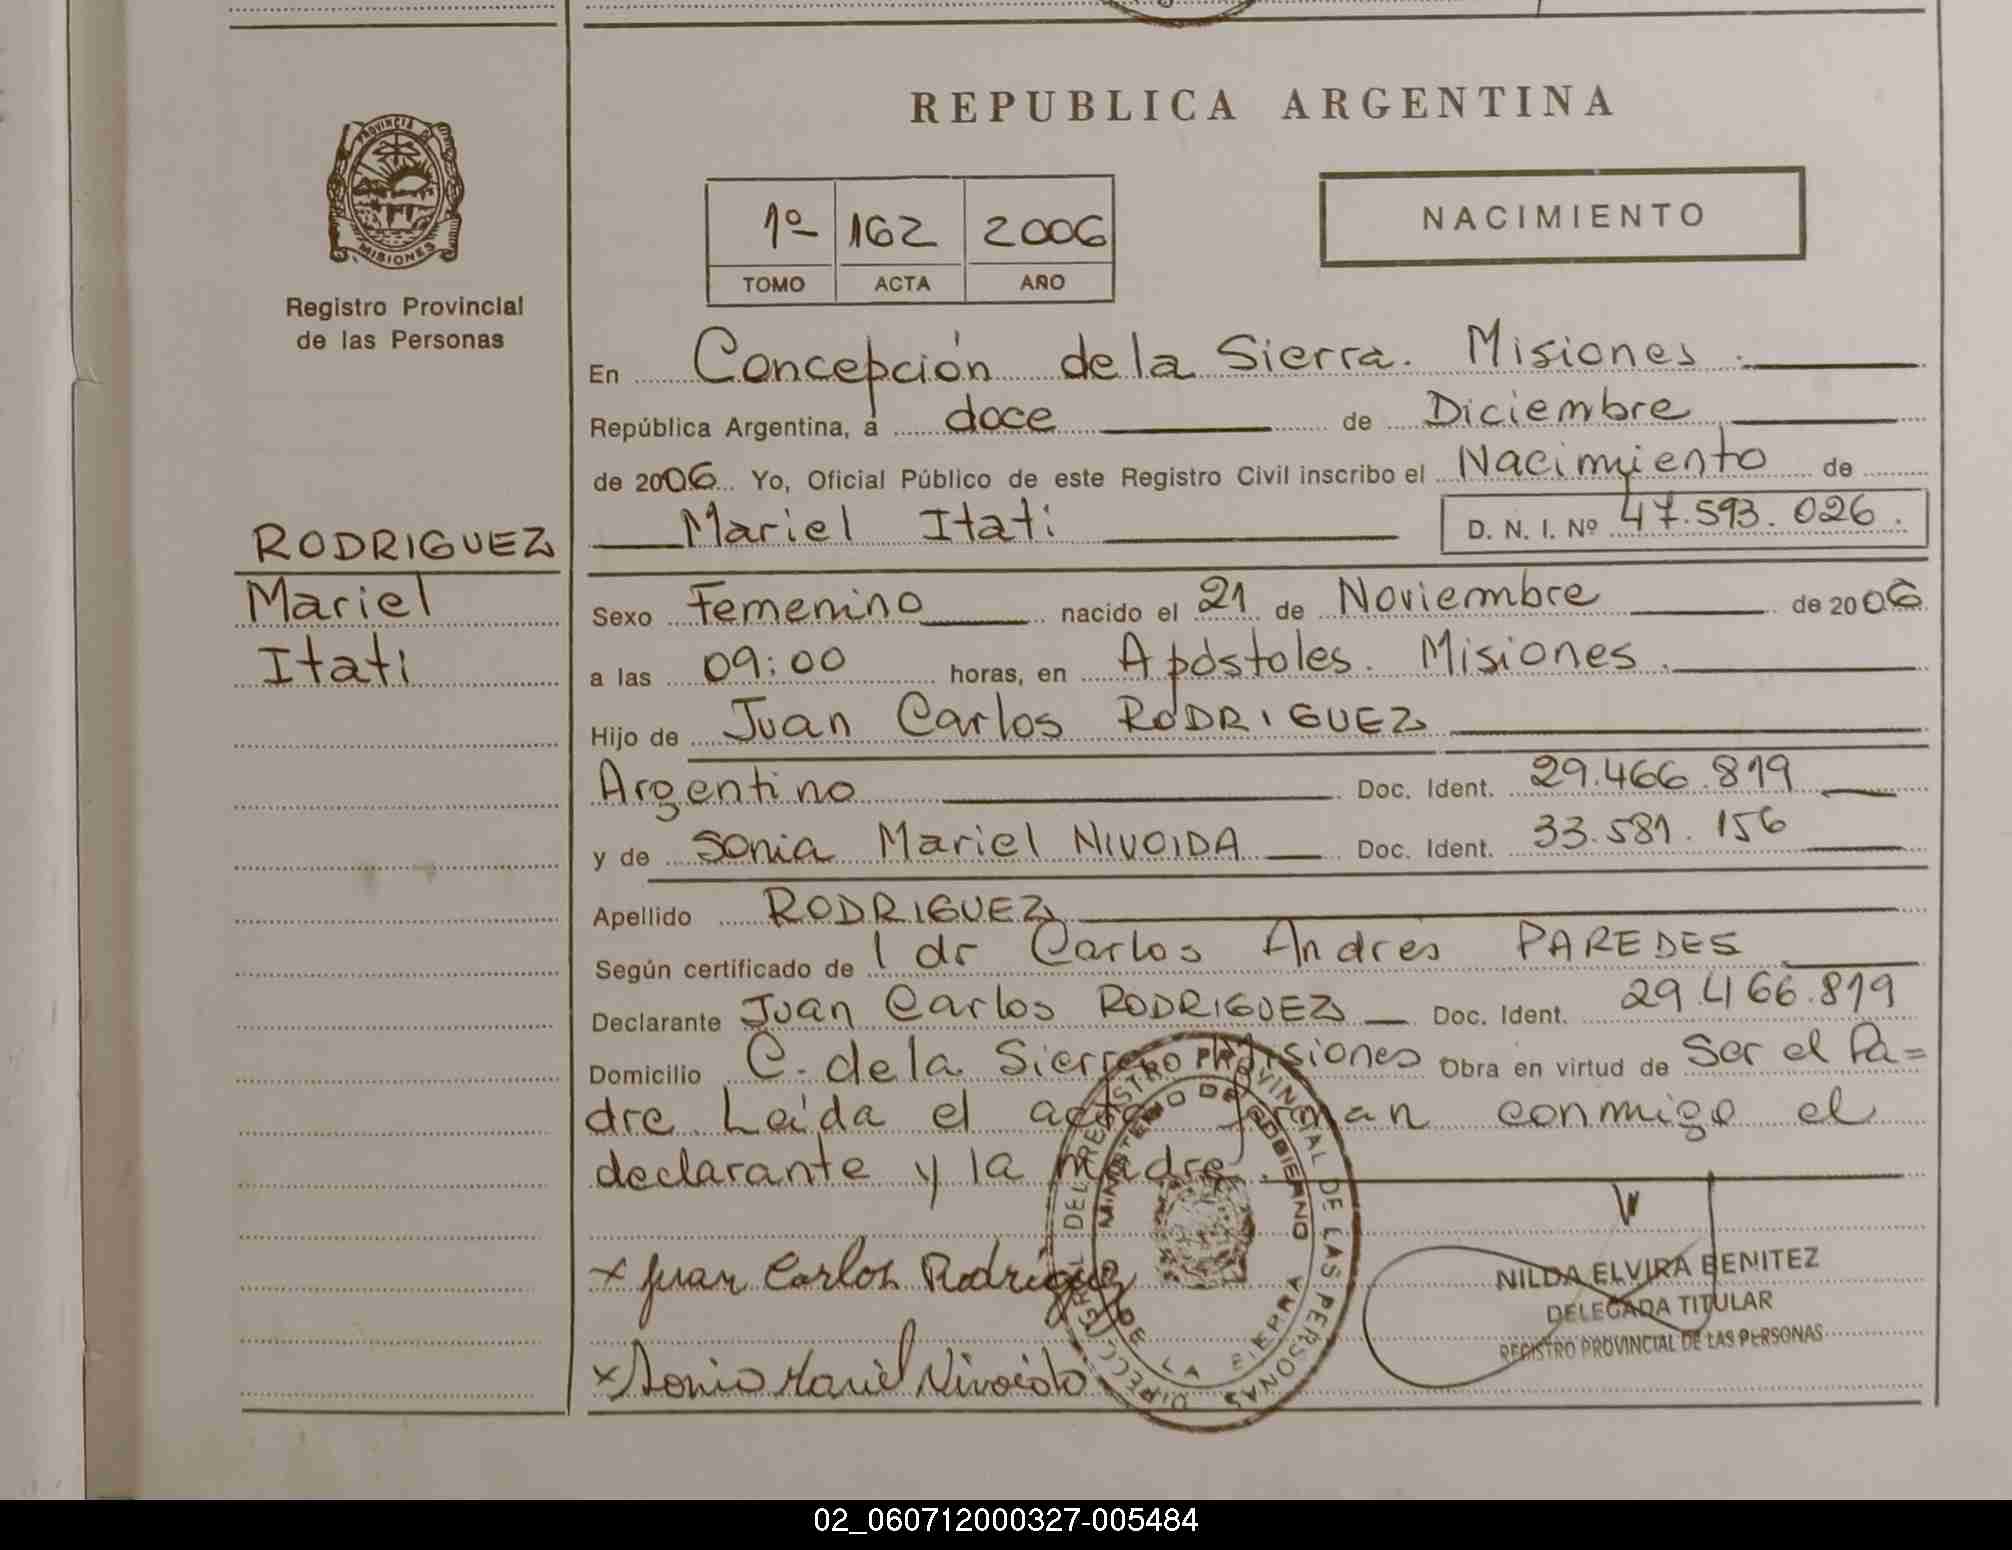 REPUBLICA ARGENTINA
PROVINCIA D
MISIONES
Registro Provincial
de las Personas
1º 162 2006
TOMO ACTA AÑO
NACIMIENTO
En Concepción de la Sierra. Misiones.
República Argentina, a doce de Diciembre
de 2006 Yo, Oficial Público de este Registro Civil inscribo el Nacimiento de
Mariel Itati D. N. I. Nº 47.593.026.
RODRIGUEZ
Mariel
Itati
Sexo Femenino nacido el 21 de Noviembre de 2006
a las 09:00 horas, en Apóstoles. Misiones.
Hijo de Juan Carlos RODRIGUEZ
Argentino Doc. Ident. 29.466.819
y de Sonia Mariel NIVOIDA Doc. Ident. 33.581.156
Apellido RODRIGUEZ
Según certificado de l dr Carlos Andrés PAREDES
Declarante Juan Carlos RODRIGUEZ Doc. Ident. 29.466.819
Domicilio C. de la Sierra Misiones Obra en virtud de Ser el Pa=
dre Leída el acta firman conmigo el
declarante y la madre.
x Juan Carlos Rodriguez
x Sonia Mariel Nivoida
DIRECC. GRAL. DEL REGISTRO PROVINCIAL DE LAS PERSONAS
MINISTERIO DE GOBIERNO
DE LA SIERRA
NILDA ELVIRA BENITEZ
DELEGADA TITULAR
REGISTRO PROVINCIAL DE LAS PERSONAS
02_060712000327-005484